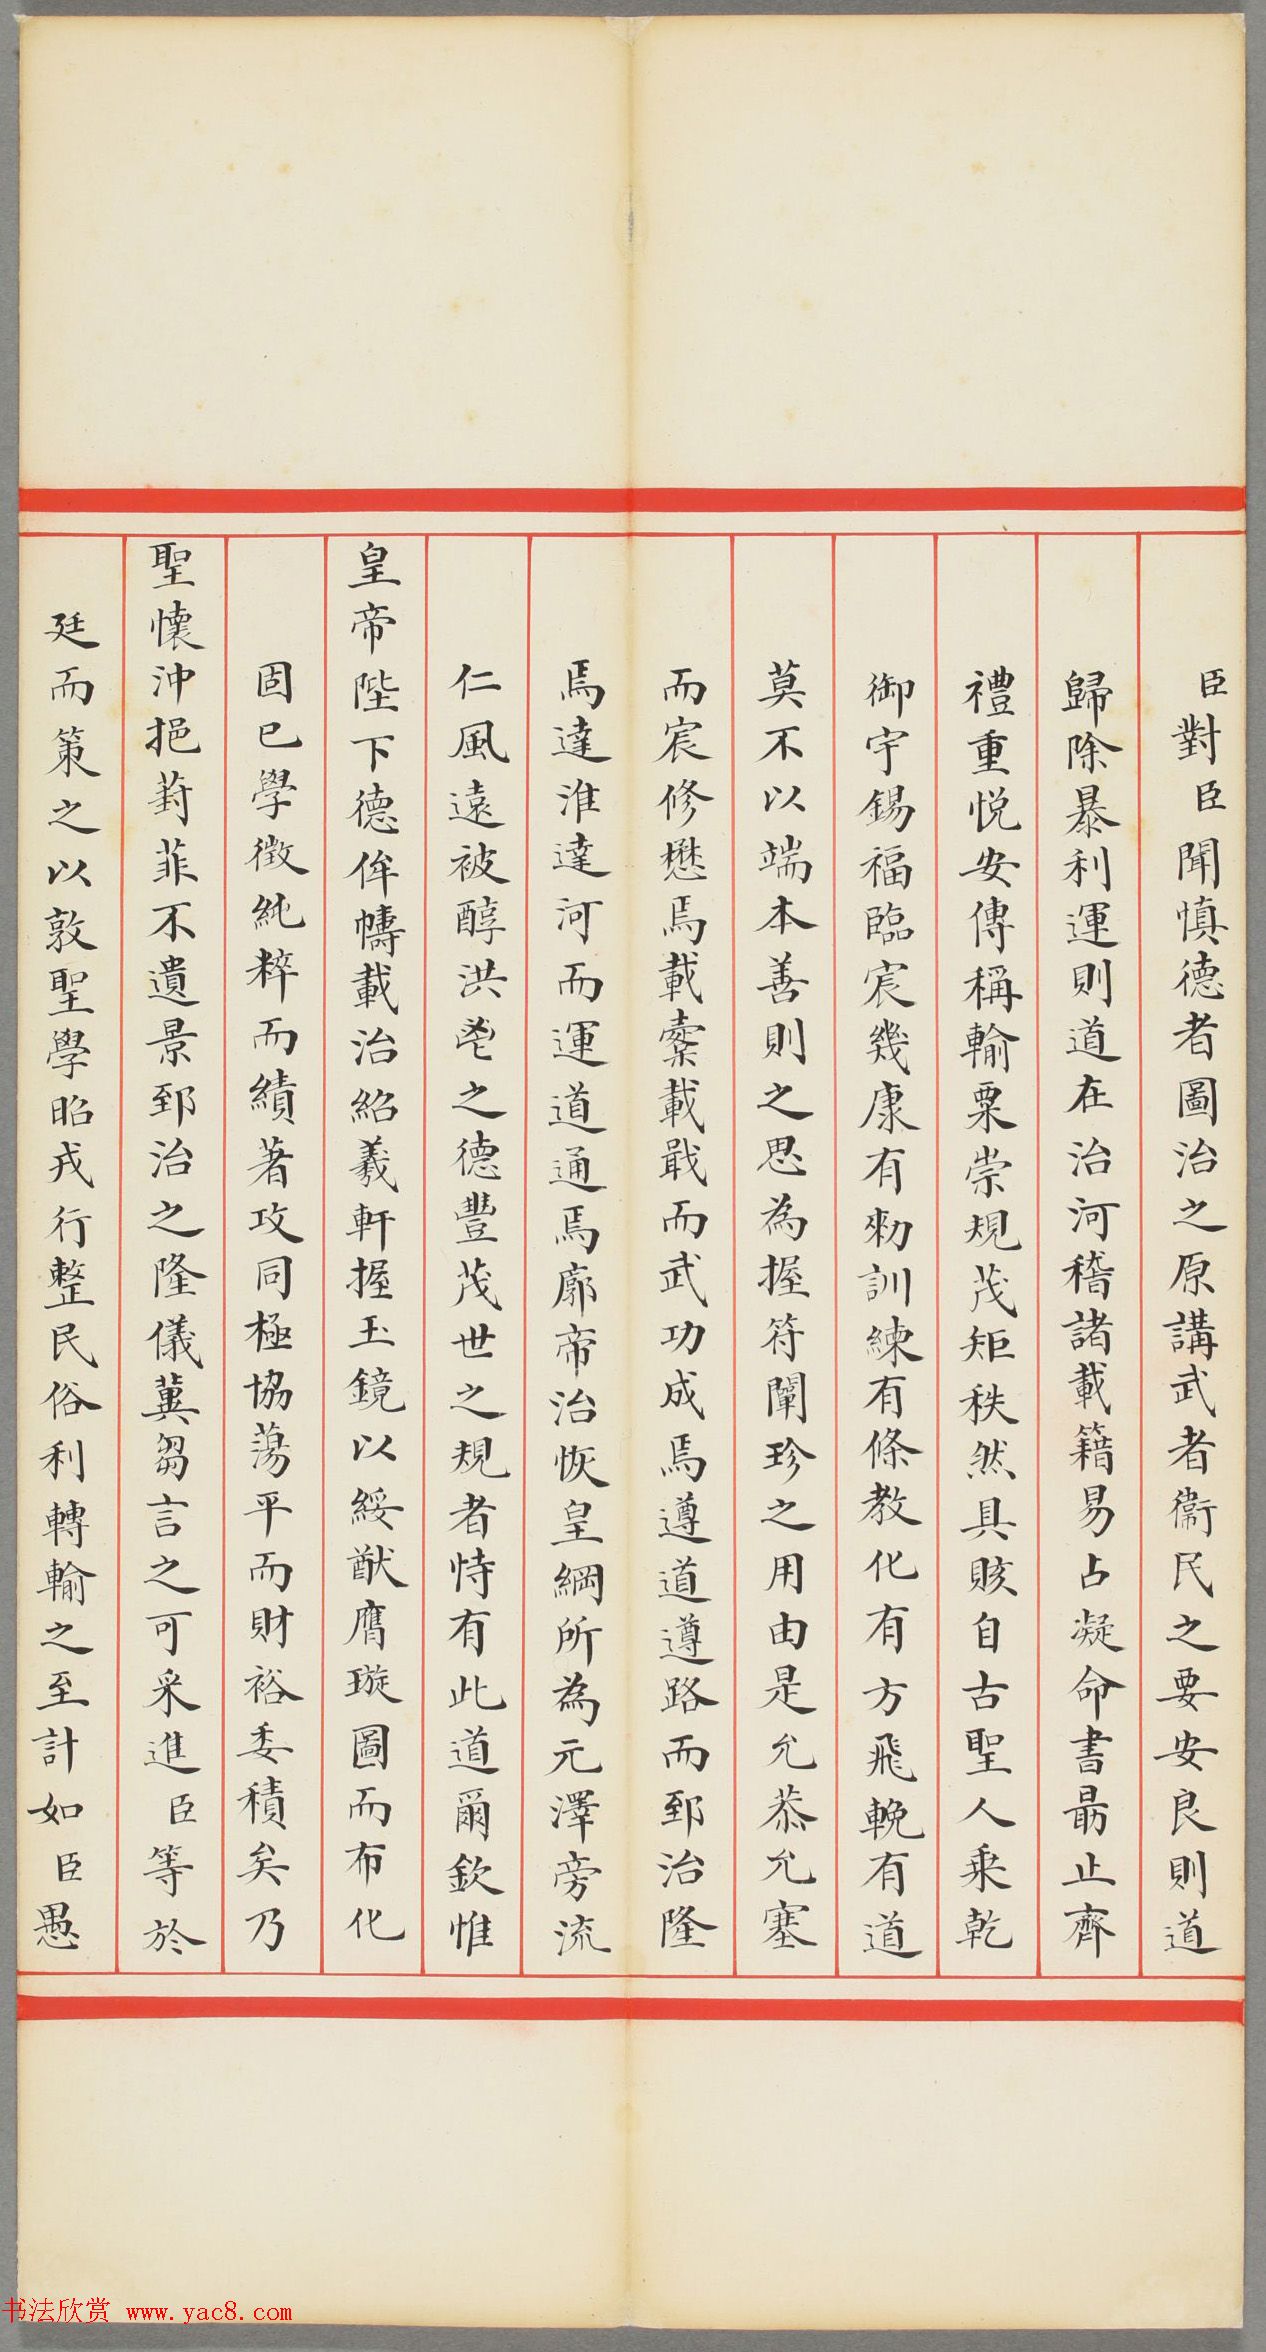 臣對臣聞慎德者圖治之原講武者衞民之要安良則道
歸除暴利運則道在治河稽諸載籍易占凝命書勗止齊
禮重悦安傳稱輸粟崇規茂矩秩然具賅自古聖人乘乾
御宇錫福臨宸幾康有勑訓練有條教化有方飛輓有道
莫不以端本善則之思為握符闡珍之用由是允恭允塞
而宸修懋焉載櫜載戢而武功成焉遵道遵路而郅治隆
焉達淮達河而運道通焉廓帝治恢皇綱所為元澤旁流
仁風遠被醇洪鬯之德豐茂世之規者恃有此道爾欽惟
皇帝陛下德侔幬載治紹羲軒握玉鏡以綏猷膺璇圖而布化
固已學徵純粹而績著攻同極協蕩平而財裕委積矣乃
聖懷沖挹葑菲不遺景郅治之隆儀冀芻言之可采進臣等於
廷而策之以敦聖學昭戎行整民俗利轉輸之至計如臣愚
书法欣赏 www.yac8.com